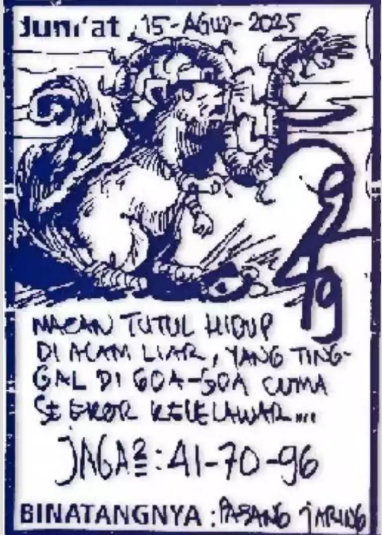 Jum'at, 15-AGUS-2025
MACAN TUTUL HIDUP
DI ALAM LIAR, YANG TING-
GAL DI GOA-GOA CUMA
SEEKOR KELELAWAR...
JAGA2: 41-70-96
BINATANGNYA: PASANG JARING